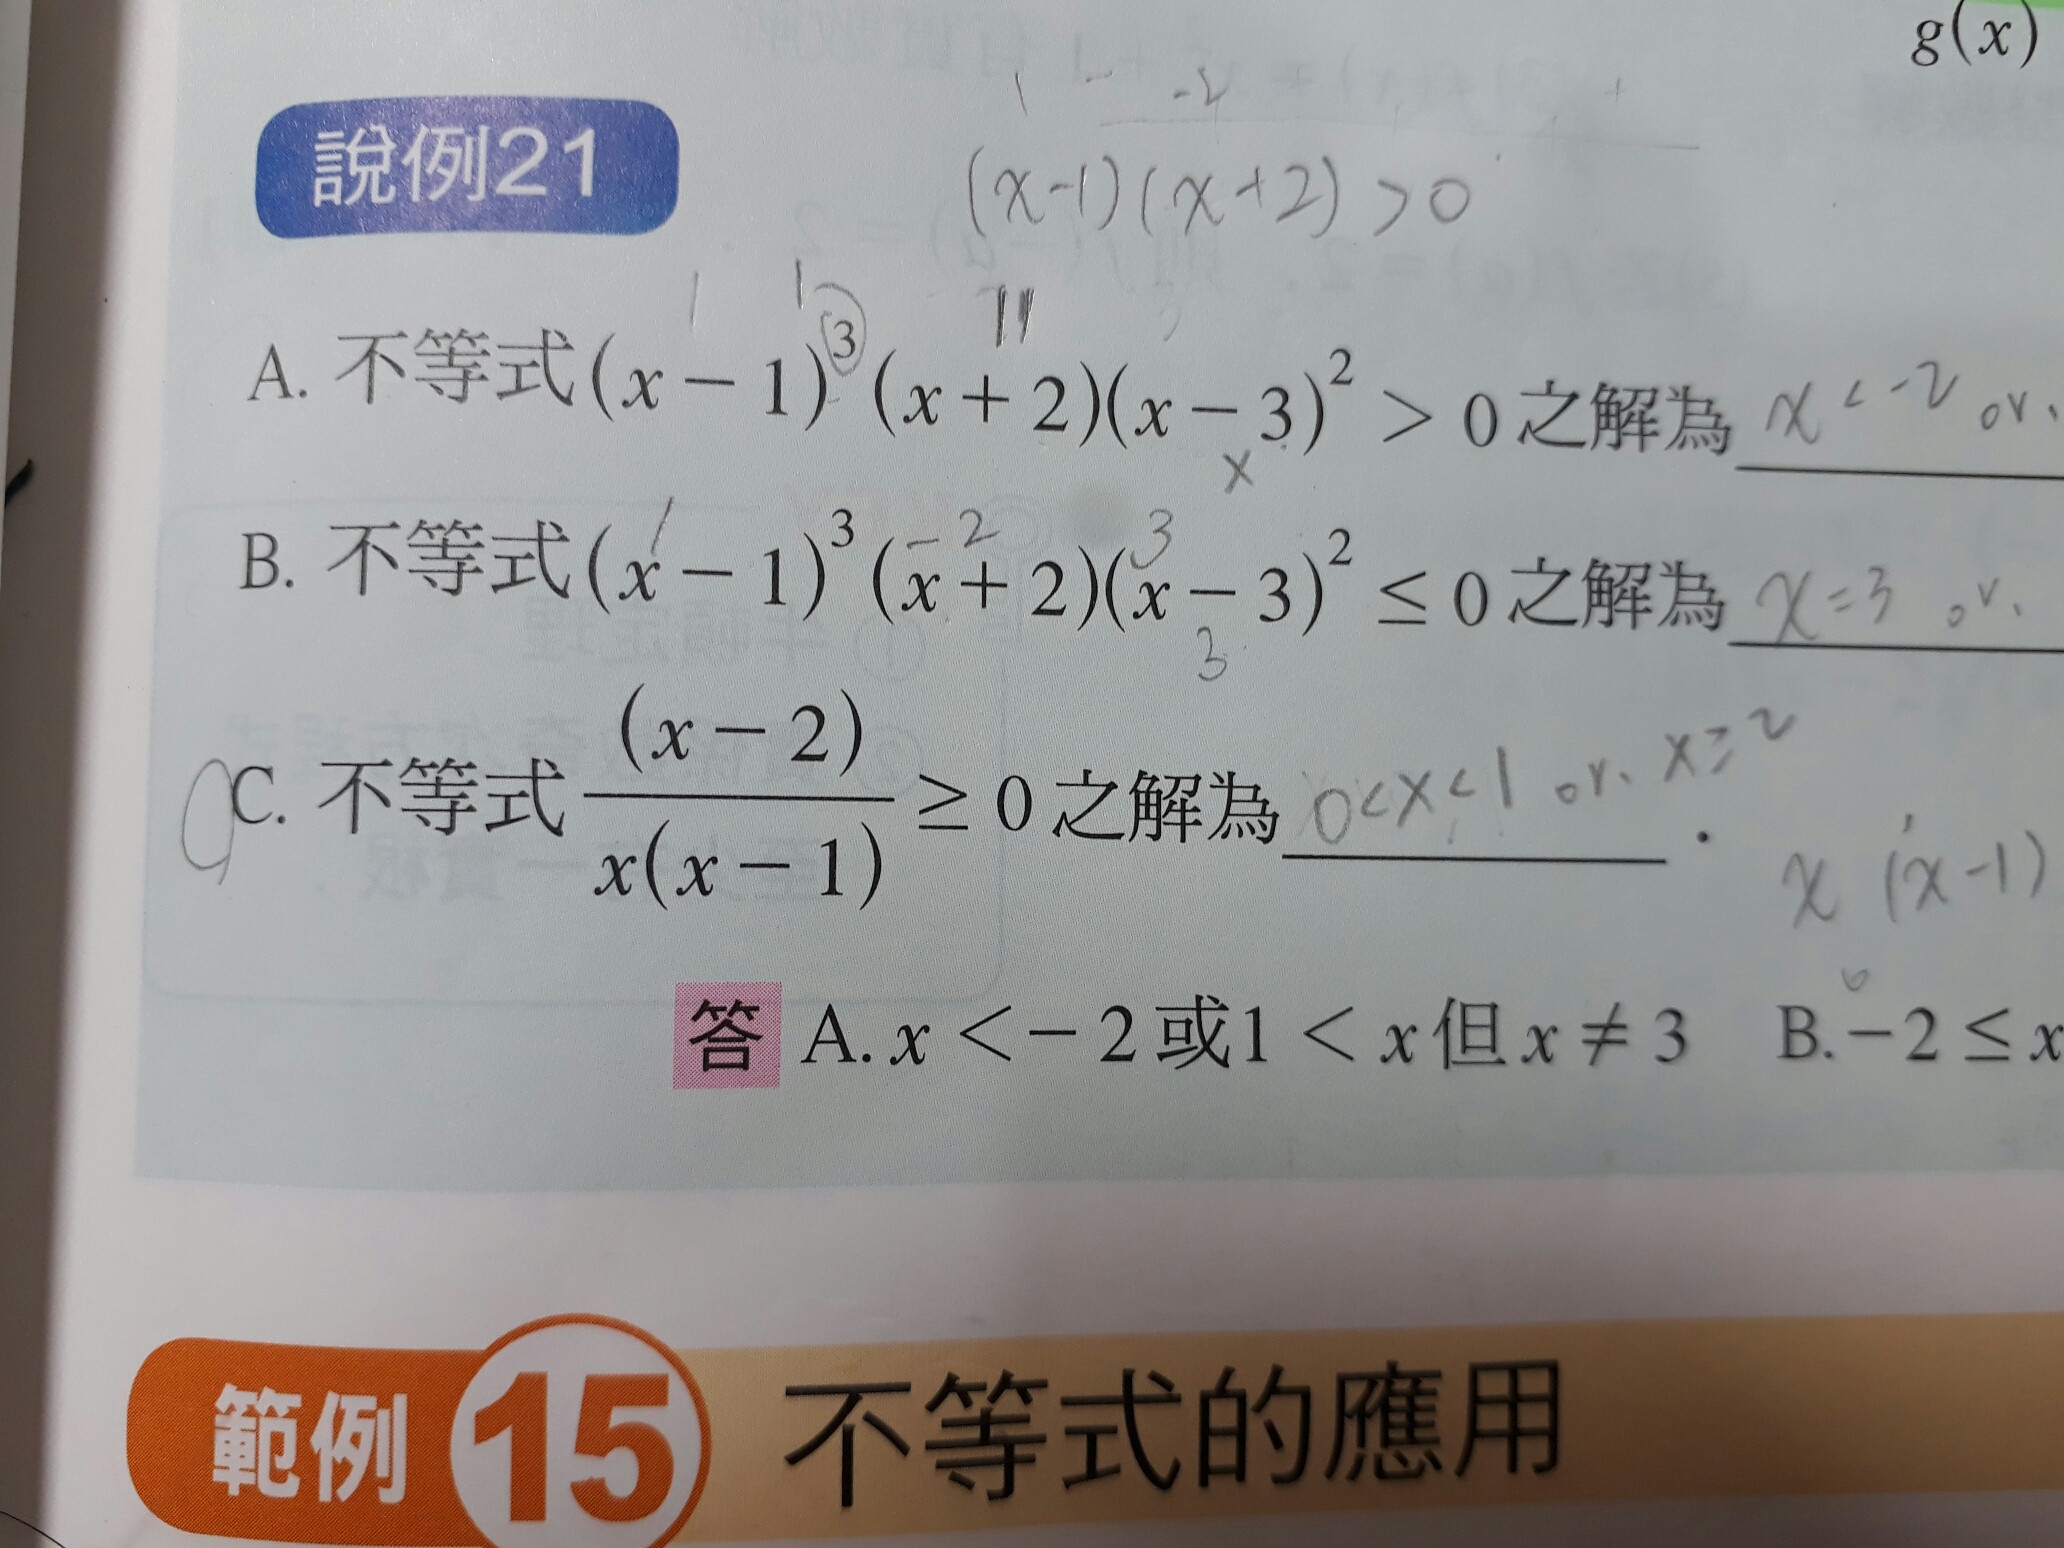 g(x)
1 - -2
說例21
(x-1)(x+2)>0
A. 不等式(x－1)³(x＋2)(x－3)²＞0之解為 x<-2 or.
B. 不等式(x－1)³(x＋2)(x－3)²≤0之解為 x=3 or.
C. 不等式 (x－2)/x(x－1) ≥0之解為 0<x<1 or. x≥2 .
x (x-1)
答 A. x＜－2或1＜x但x≠3 B.－2≤x
範例 15 不等式的應用